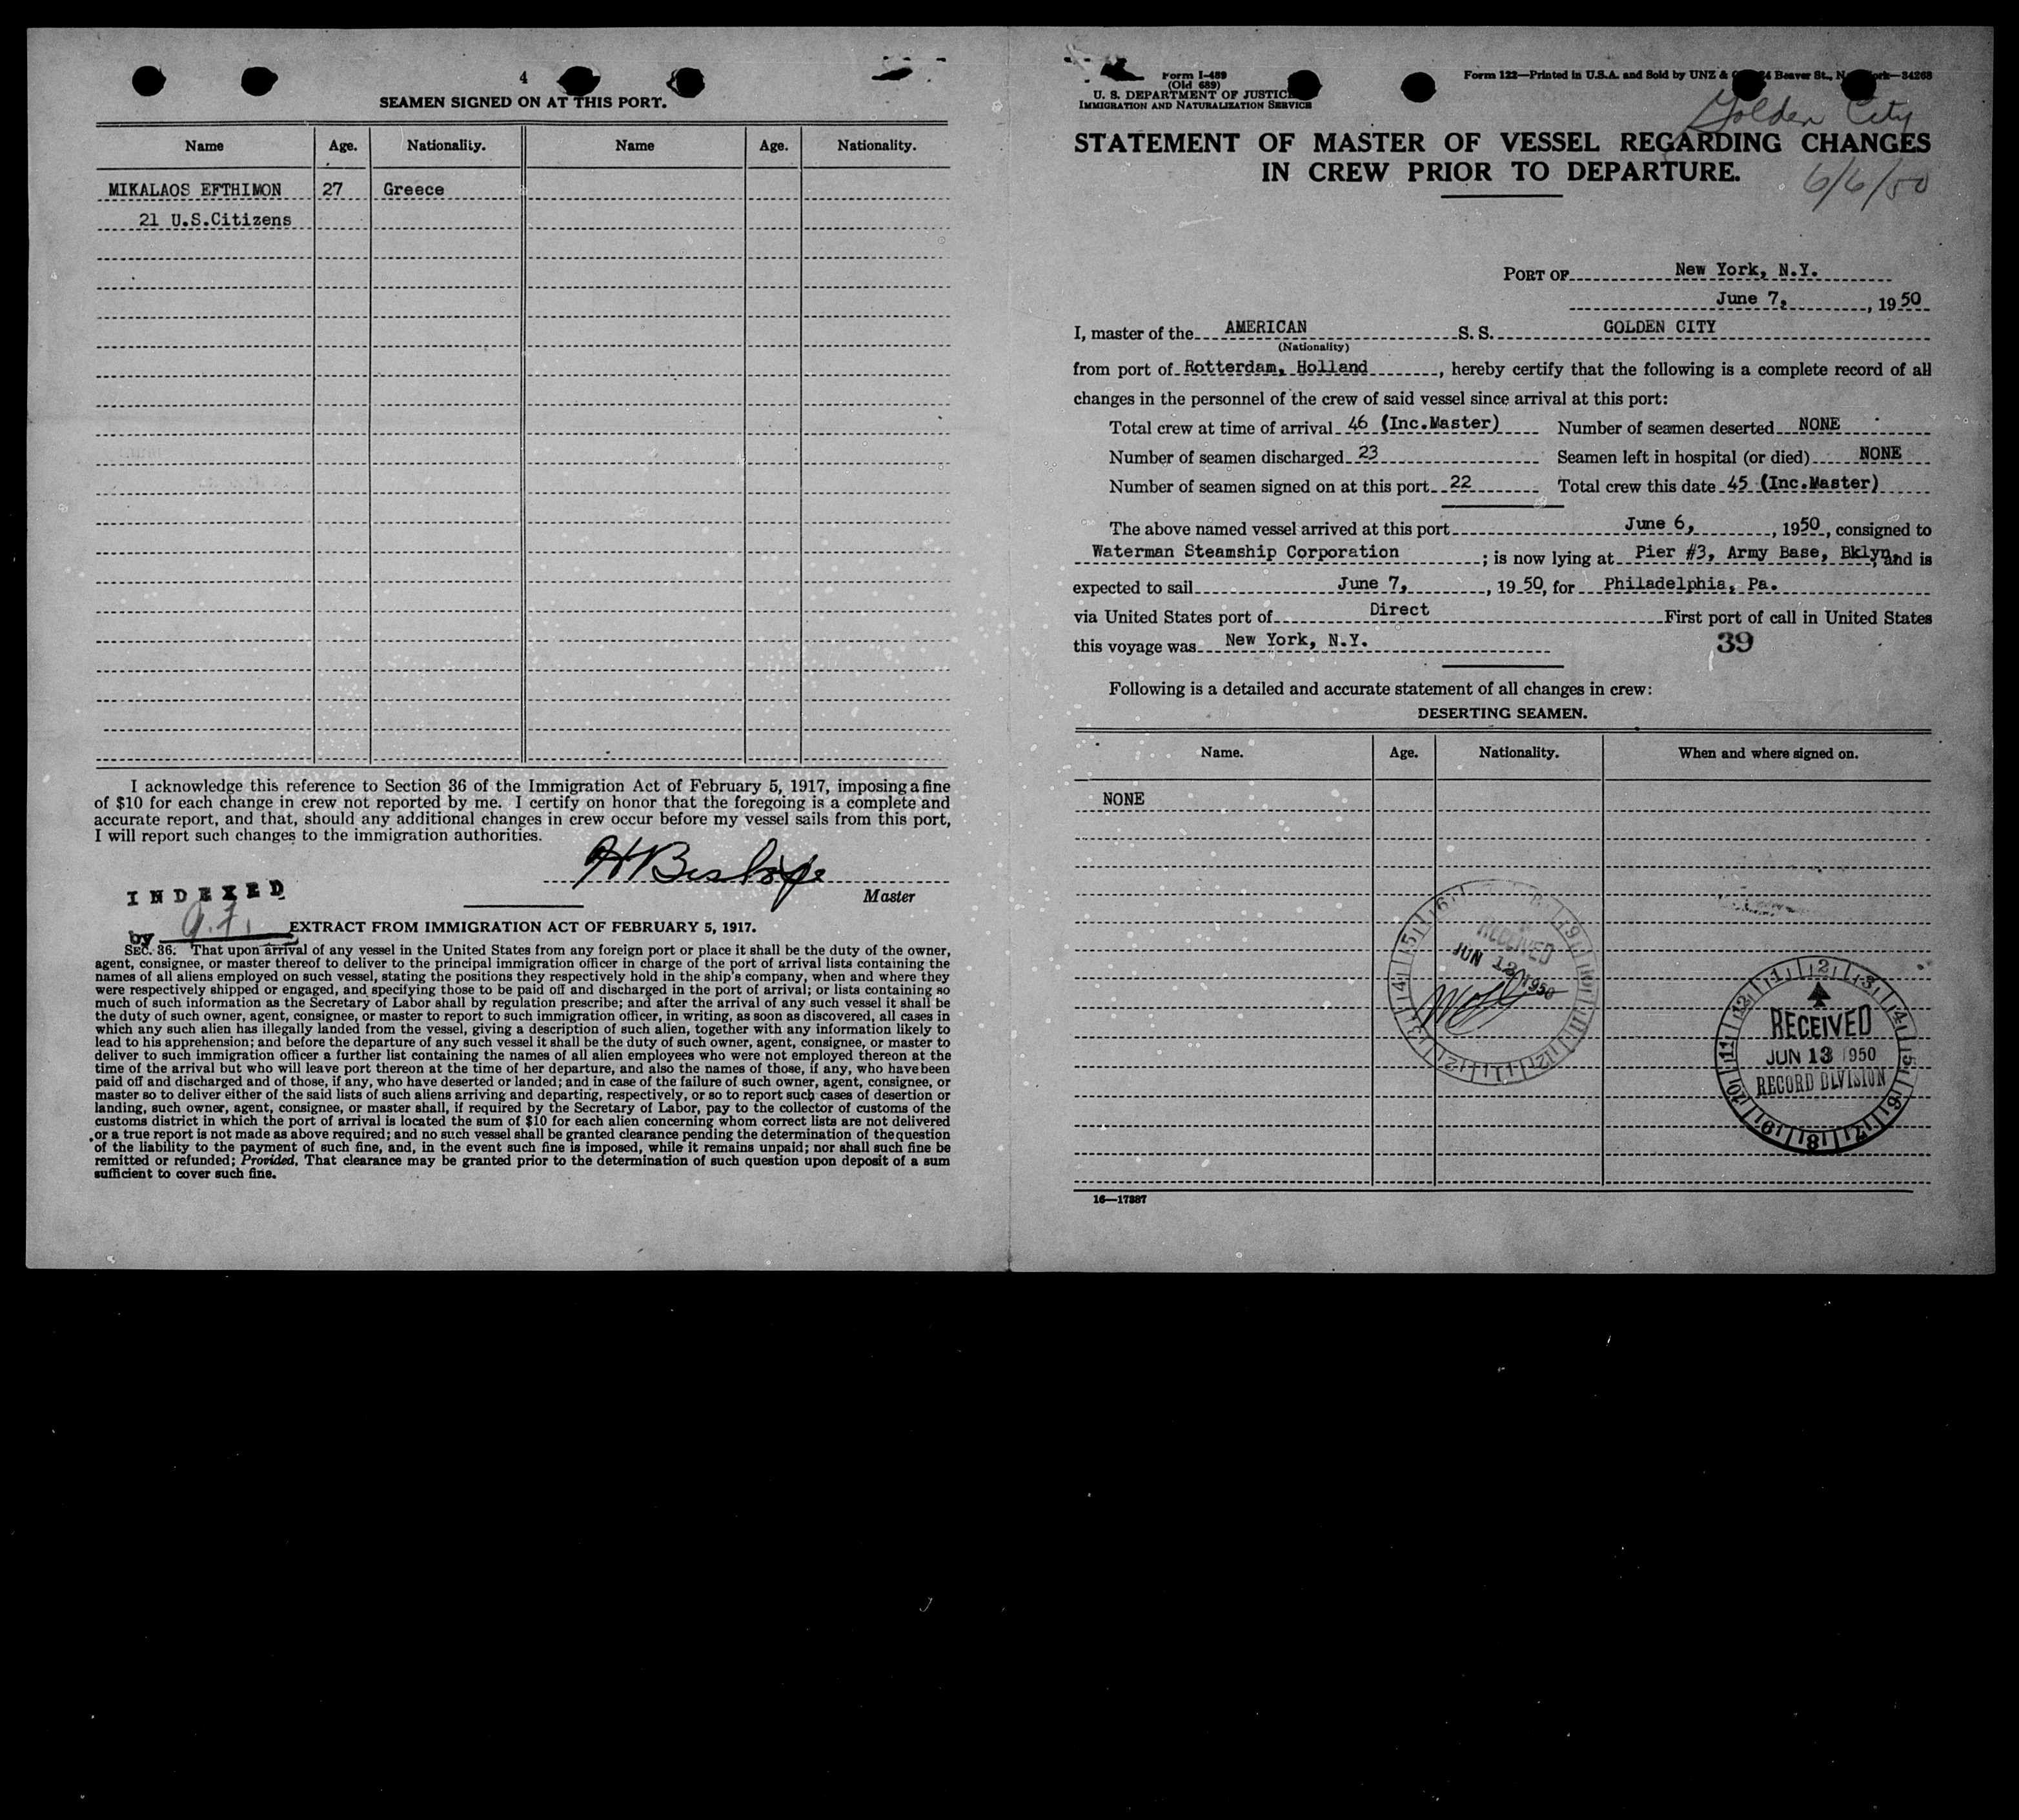 4
SEAMEN SIGNED ON AT THIS PORT.
Name Age. Nationality. Name Age. Nationality.
MIKALAOS EFTHIMON 27 Greece
21 U.S.Citizens
I acknowledge this reference to Section 36 of the Immigration Act of February 5, 1917, imposing a fine
of $10 for each change in crew not reported by me. I certify on honor that the foregoing is a complete and
accurate report, and that, should any additional changes in crew occur before my vessel sails from this port,
I will report such changes to the immigration authorities.
H Bishop
Master
INDEXED
by
EXTRACT FROM IMMIGRATION ACT OF FEBRUARY 5, 1917.
SEC. 36. That upon arrival of any vessel in the United States from any foreign port or place it shall be the duty of the owner,
agent, consignee, or master thereof to deliver to the principal immigration officer in charge of the port of arrival lists containing the
names of all aliens employed on such vessel, stating the positions they respectively hold in the ship's company, when and where they
were respectively shipped or engaged, and specifying those to be paid off and discharged in the port of arrival; or lists containing so
much of such information as the Secretary of Labor shall by regulation prescribe; and after the arrival of any such vessel it shall be
the duty of such owner, agent, consignee, or master to report to such immigration officer, in writing, as soon as discovered, all cases in
which any such alien has illegally landed from the vessel, giving a description of such alien, together with any information likely to
lead to his apprehension; and before the departure of any such vessel it shall be the duty of such owner, agent, consignee, or master to
deliver to such immigration officer a further list containing the names of all alien employees who were not employed thereon at the
time of the arrival but who will leave port thereon at the time of her departure, and also the names of those, if any, who have been
paid off and discharged and of those, if any, who have deserted or landed; and in case of the failure of such owner, agent, consignee, or
master so to deliver either of the said lists of such aliens arriving and departing, respectively, or so to report such cases of desertion or
landing, such owner, agent, consignee, or master shall, if required by the Secretary of Labor, pay to the collector of customs of the
customs district in which the port of arrival is located the sum of $10 for each alien concerning whom correct lists are not delivered
or a true report is not made as above required; and no such vessel shall be granted clearance pending the determination of the question
of the liability to the payment of such fine, and, in the event such fine is imposed, while it remains unpaid; nor shall such fine be
remitted or refunded; Provided, That clearance may be granted prior to the determination of such question upon deposit of a sum
sufficient to cover such fine.
Form I-489
(Old 689)
U. S. DEPARTMENT OF JUSTICE
IMMIGRATION AND NATURALIZATION SERVICE
Form 122—Printed in U.S.A. and Sold by UNZ & Beaver St., 34268
Golden City
STATEMENT OF MASTER OF VESSEL REGARDING CHANGES
IN CREW PRIOR TO DEPARTURE.
6/6/50
PORT OF New York, N.Y.
June 7, , 1950
I, master of the AMERICAN S. S. GOLDEN CITY
(Nationality)
from port of Rotterdam, Holland , hereby certify that the following is a complete record of all
changes in the personnel of the crew of said vessel since arrival at this port:
Total crew at time of arrival 46 (Inc.Master) Number of seamen deserted NONE
Number of seamen discharged 23 Seamen left in hospital (or died) NONE
Number of seamen signed on at this port 22 Total crew this date 45 (Inc.Master)
The above named vessel arrived at this port June 6, , 1950, consigned to
Waterman Steamship Corporation ; is now lying at Pier #3, Army Base, Bklyn, and is
expected to sail June 7, , 1950, for Philadelphia, Pa.
via United States port of Direct First port of call in United States
this voyage was New York, N.Y.
39
Following is a detailed and accurate statement of all changes in crew:
DESERTING SEAMEN.
Name. Age. Nationality. When and where signed on.
NONE
RECEIVED
JUN 12 1950
RECEIVED
JUN 13 1950
RECORD DIVISION
16—17887